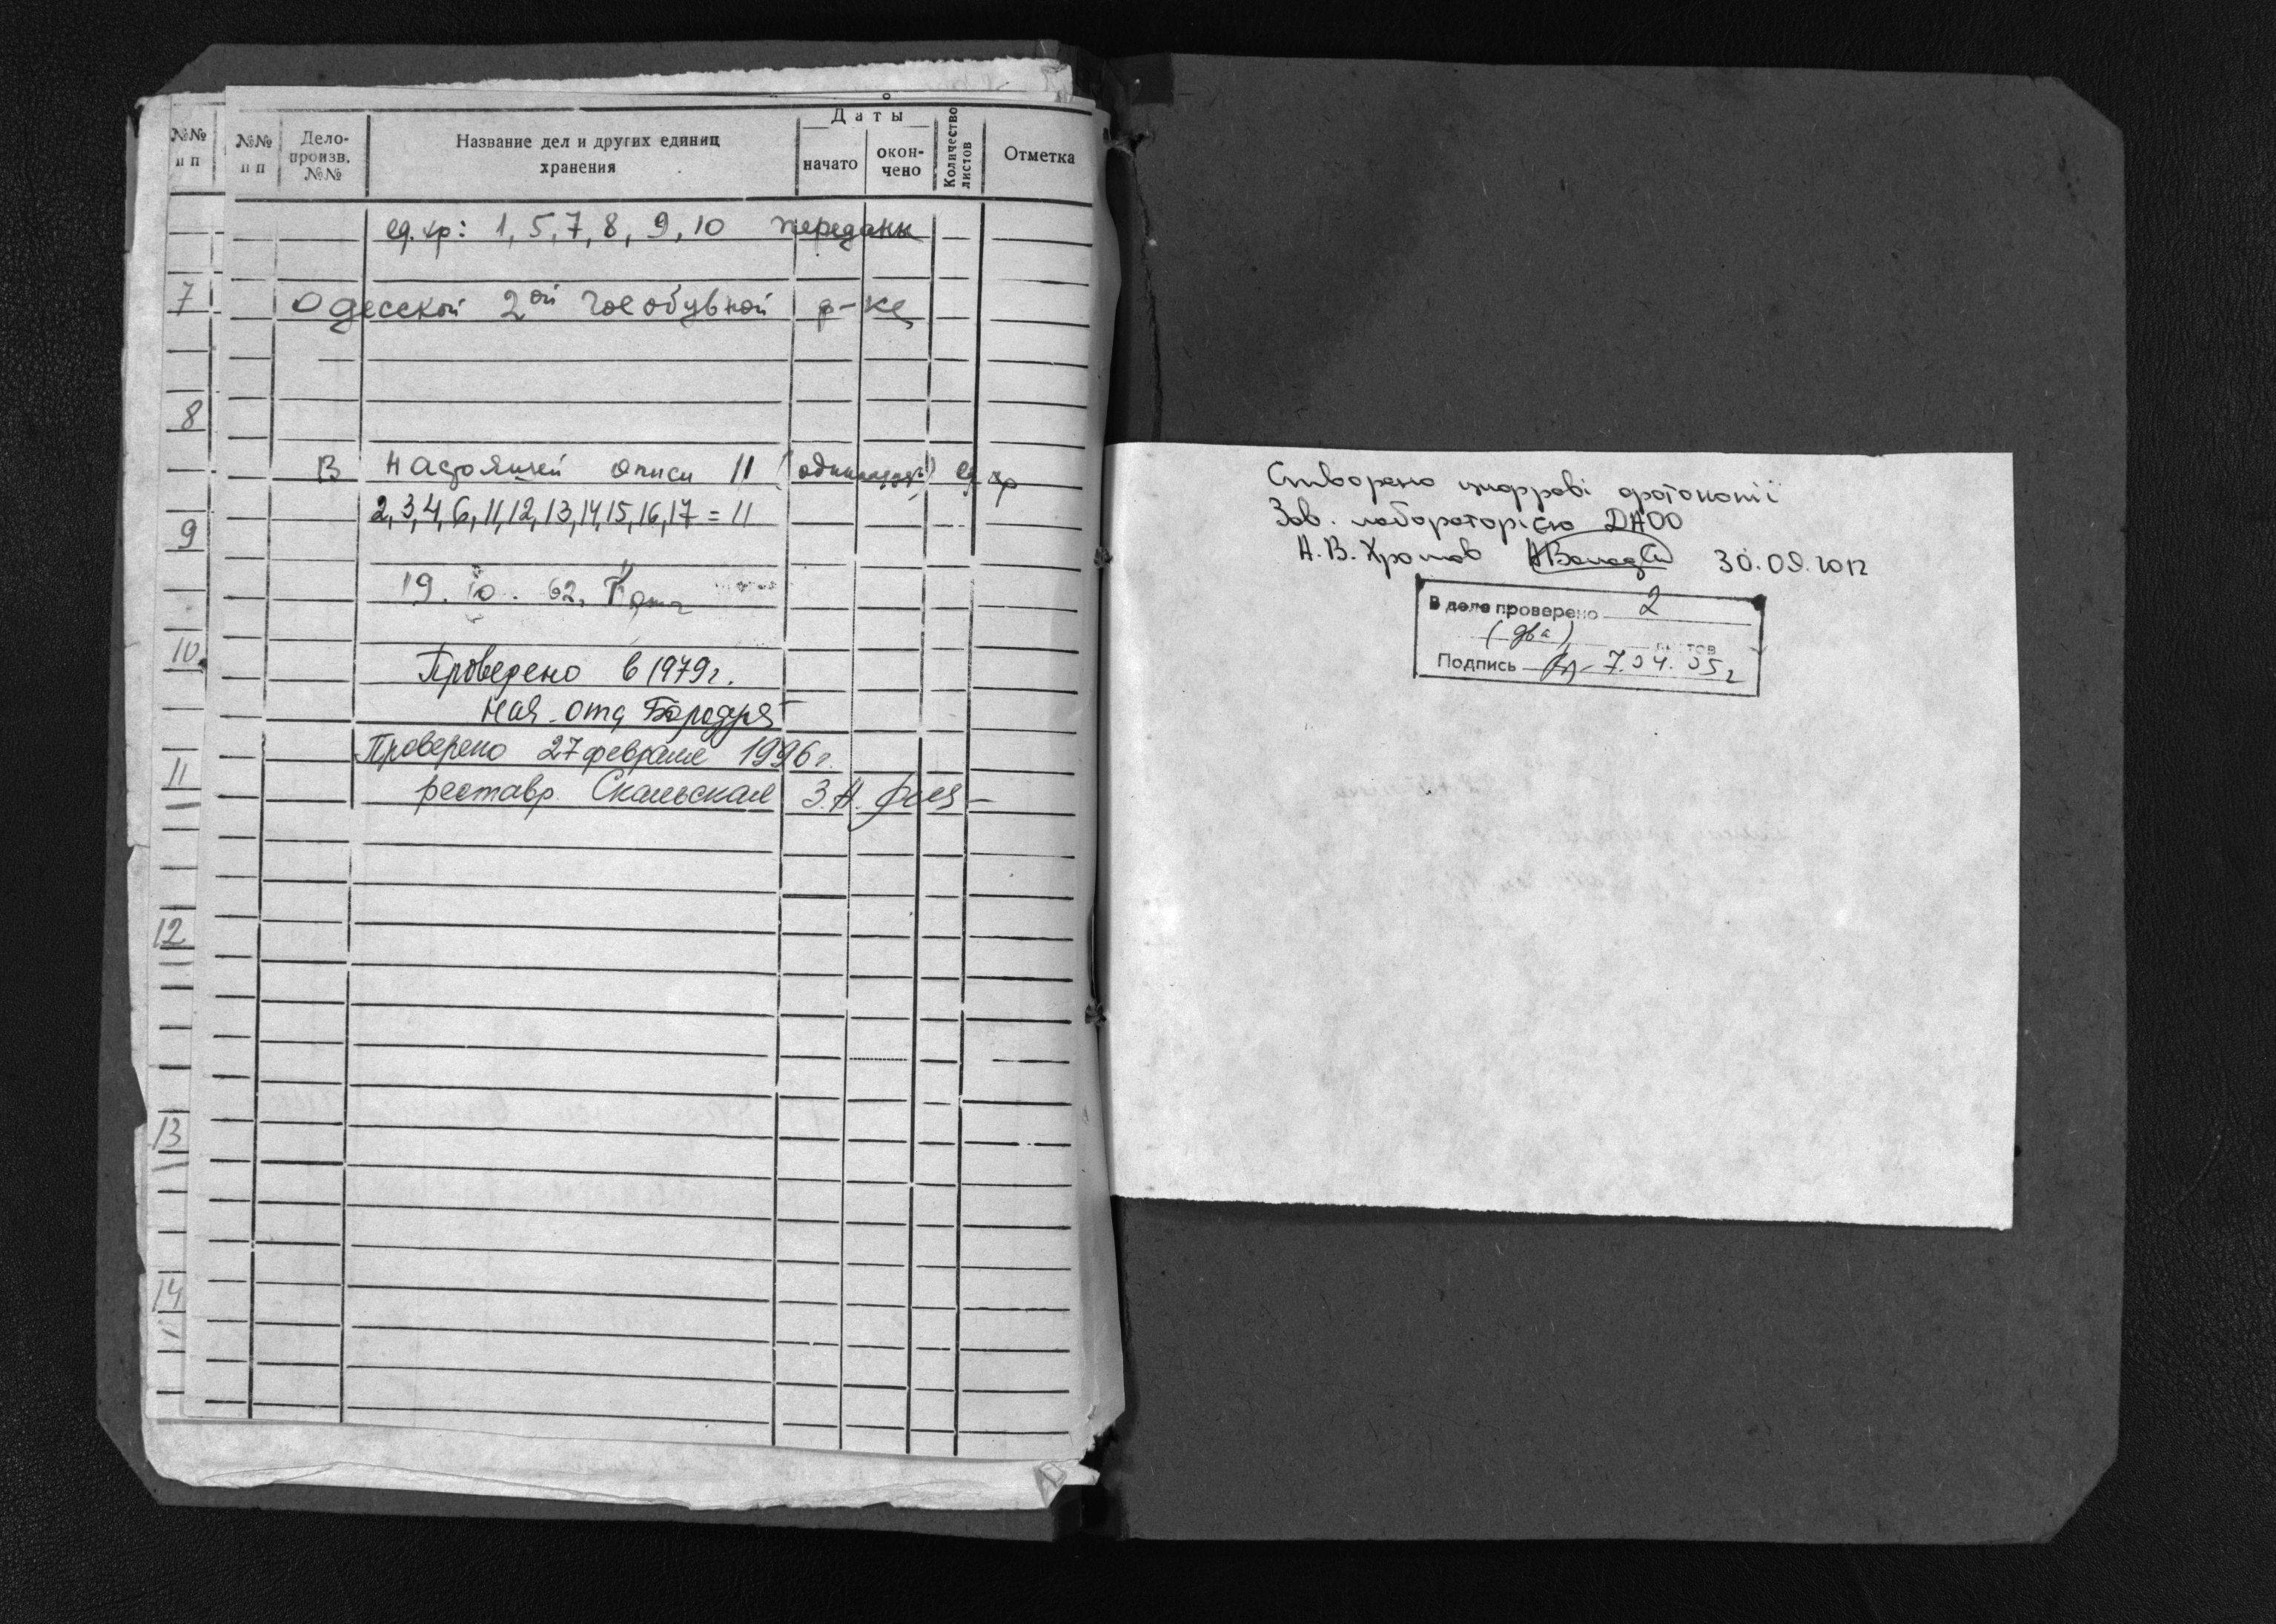 №№ п п
№№ п п
Дело-произв. №№
Название дел и других единиц хранения
Даты
начато
окон-чено
Количество листов
Отметка
ед. хр: 1, 5, 7, 8, 9, 10 переданы
7
Одесской 2ой гос обувной ф-ке
8
В настоящей описи 11 (одиннадцать) ед хр
2, 3, 4, 6, 11, 12, 13, 14, 15, 16, 17 = 11
9
19. 10. 62.
10
Проверено в 1979 г.
нач. отд
Проверено 27 февраля 1996 г.
11
реставр. Скальская З.А.
12
13
14
Створено цифрові фотокопії
Зав. лабораторією ДАОО
А.В. Хромов 30.09.2012
В деле проверено 2
(два)
листов
Подпись 7.04.05 г